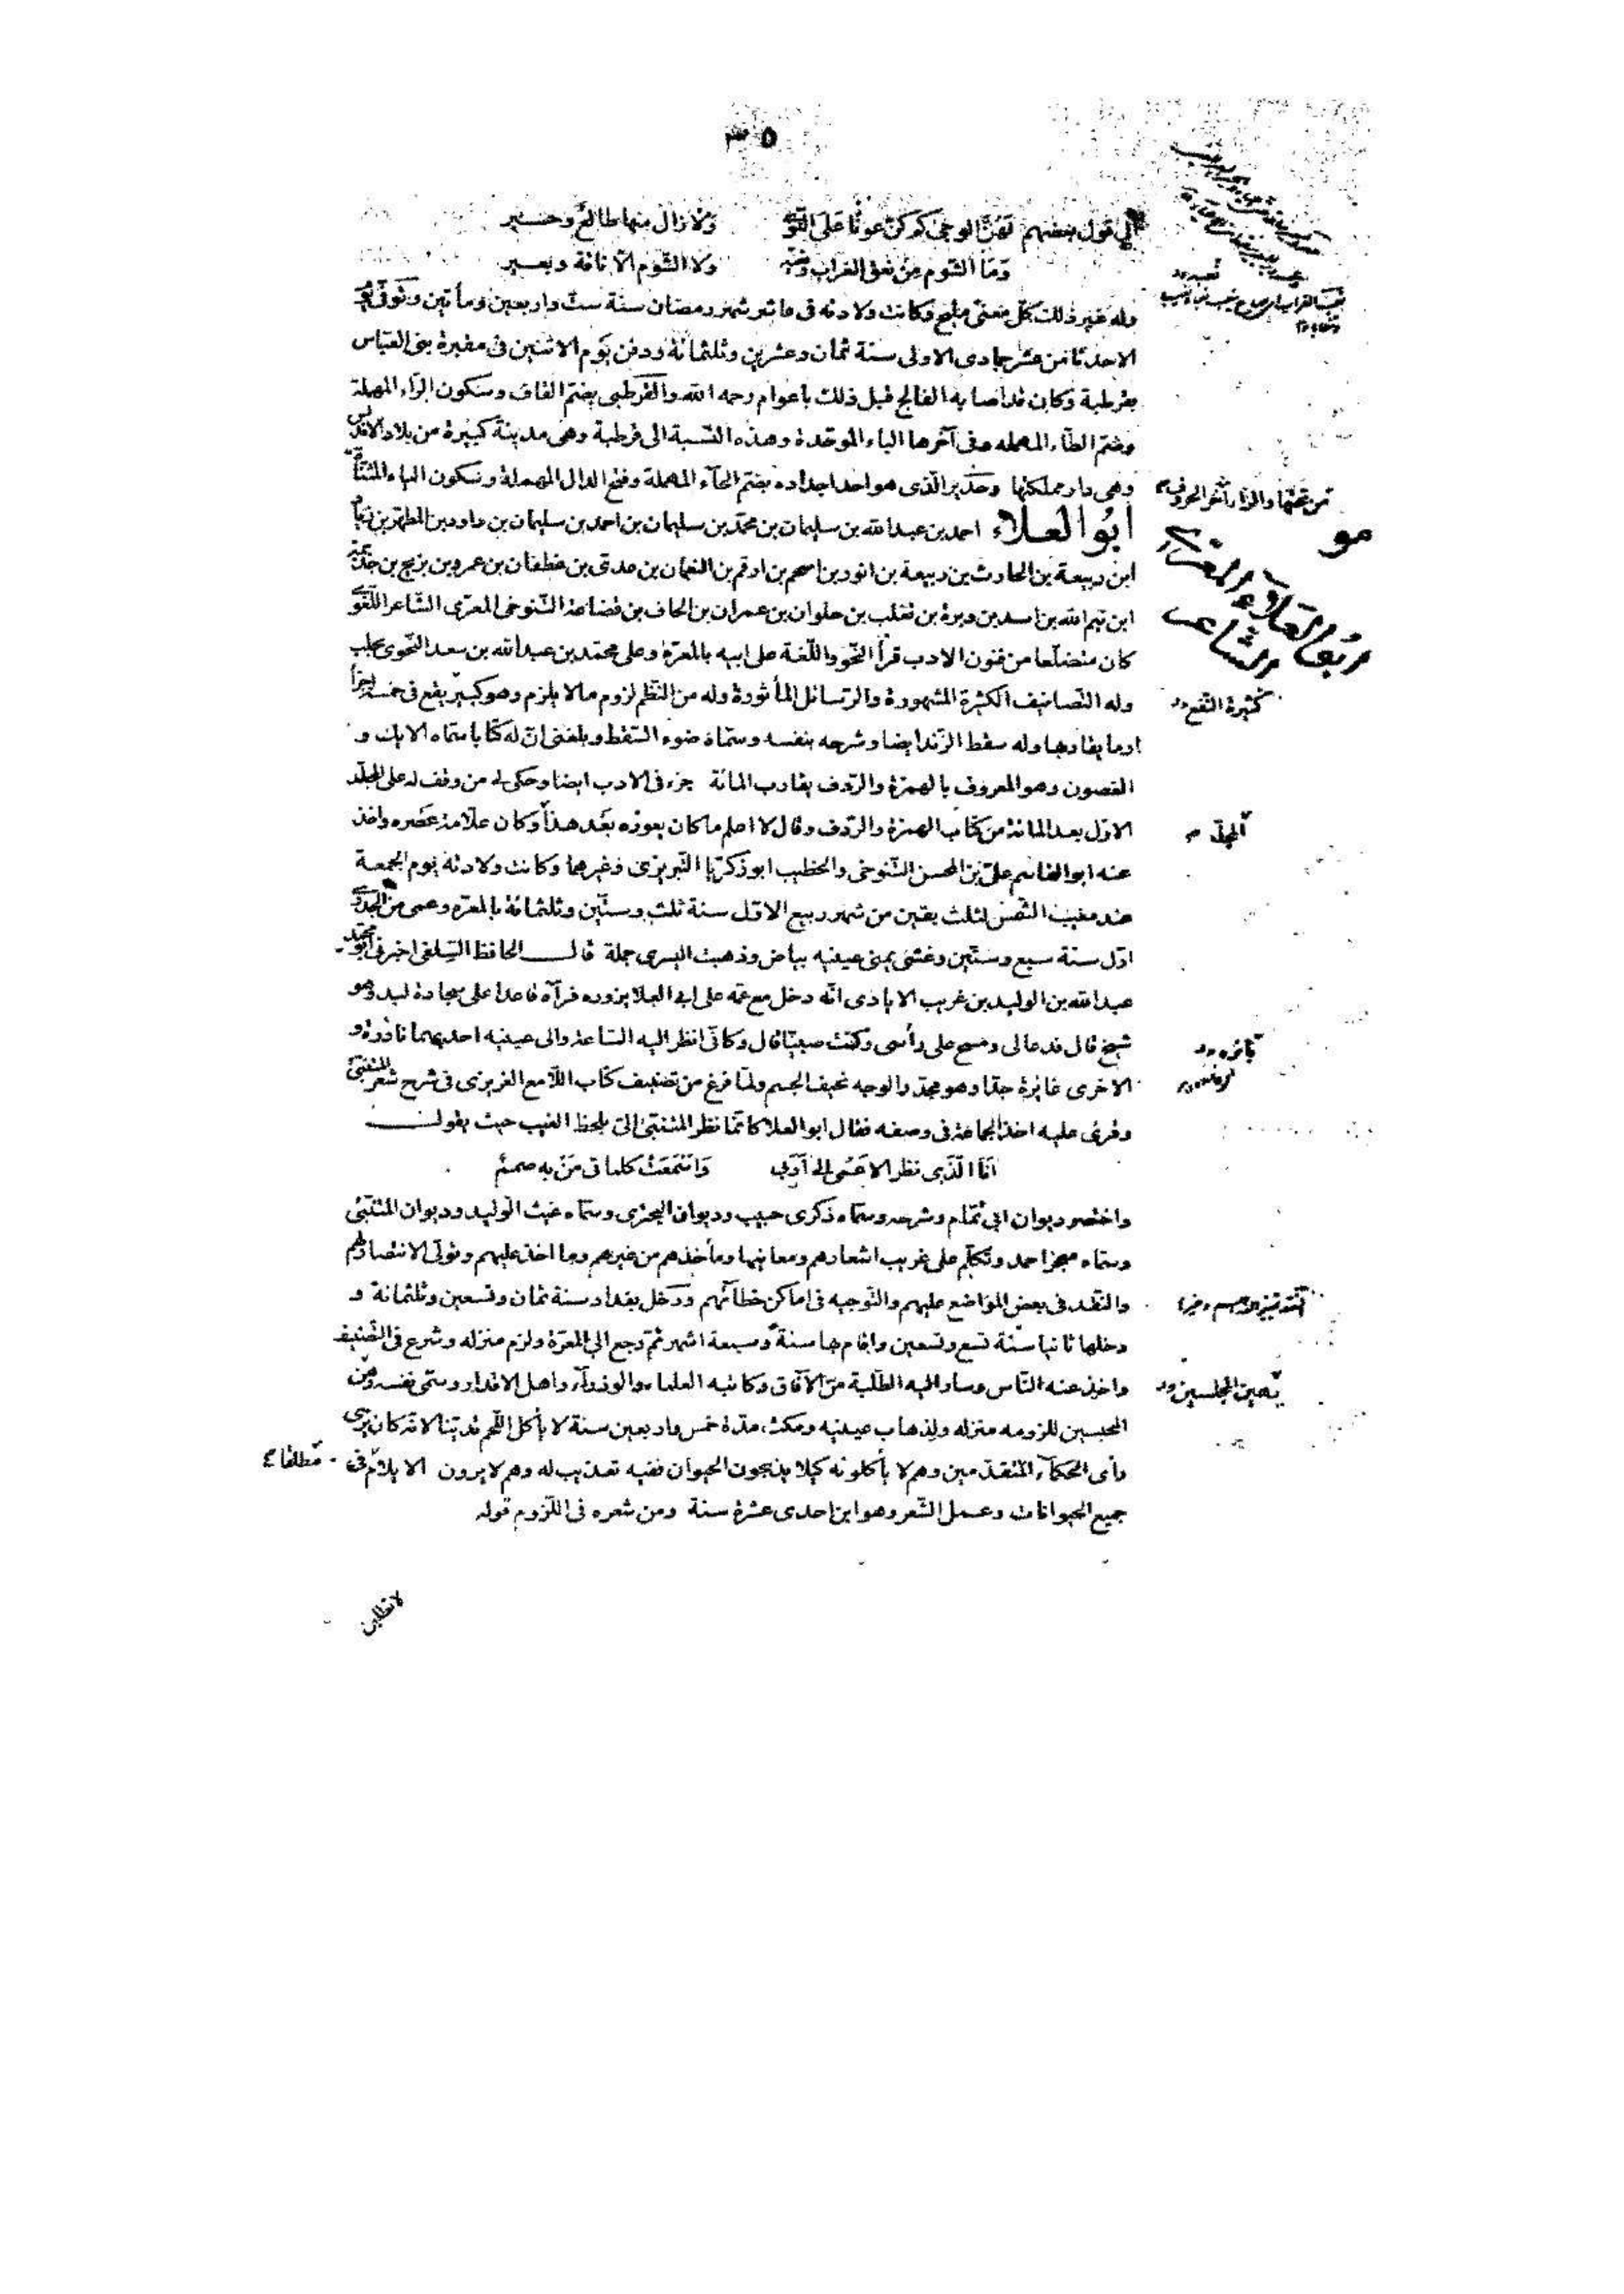 ٥
الى قول بعضهم لهنّ الوجى كم كنّ عونًا على النّوى ولا زال منها ظالع وحسير
وما الشوم من نعق الغراب ونعيه ولا الشوم الّا ناقة وبعير
وله غير ذلك كلّ معنى مليح وكانت ولادته فى عاشر شهر رمضان سنة ست واربعين ومأتين وتوفى يوم
الاحد ثامن عشر جمادى الاولى سنة ثمان وعشرين وثلثمائة ودفن يوم الاثنين فى مقبرة بنى العبّاس
بقرطبة وكان قد اصابه الفالج قبل ذلك باعوام رحمه الله والقرطبى بضم القاف وسكون الرّاء المهملة
وضم الطّاء المهمله وفى آخرها الباء الموحّدة وهذه النّسبة الى قرطبة وهى مدينة كبيرة من بلاد الاندلس
وهى دار مملكتها وحدير الّذى هو احد اجداده بضمّ الحآء المهملة وفتح الدال المهملة وسكون الياء المثنّاة
من تحتها والرّاء آخر الحروف
ابو العلاء احمد بن عبد الله بن سليمان بن محمّد بن سليمان بن احمد بن سليمان بن داود بن المطهّر بن زياد
ابو العلاء المعرى الشاعر
ابن ربيعة بن الحارث بن ربيعة بن انور بن اسحم بن ارقم بن النعمان بن عدى بن غطفان بن عمرو بن بريح بن جذيمة
ابن تيم الله بن اسد بن وبرة بن تغلب بن حلوان بن عمران بن الحاف بن قضاعة التّنوخى المعرّى الشّاعر اللّغوى
كان متضلّعا من فنون الادب قرأ النّحو واللّغة على ابيه بالمعرّة وعلى محمّد بن عبد الله بن سعد النّحوى بحلب
وله التّصانيف الكثيرة المشهورة والرّسائل المأثورة وله من النّظم لزوم ما لا يلزم وهو كبير يقع فى خمسة اجزا
او ما يقاربها وله سقط الزّند ايضا وشرحه بنفسه وسمّاه ضوء السّقط وبلغنى انّ له كتابا سمّاه الايك و
الغصون وهو المعروف بالهمزة والرّدف يقارب المائة جزء فى الادب ايضا وحكى لى من وقف له على المجلّد
الاوّل بعد المائة من كتاب الهمزة والرّدف وقال لا اعلم ما كان يعوزه بعد هذا وكان علّامة عصره واخذ
عنه ابو القاسم علىّ بن المحسن التّنوخى والخطيب ابو زكريّا التّبريزى وغيرهما وكانت ولادته يوم الجمعة
عند مغيب الشّمس لثلث بقين من شهر ربيع الاوّل سنة ثلث وستّين وثلثمائة بالمعرّه وعمى من الجدرى
اوّل سنة سبع وستّين وغشى يمنى عينيه بياض وذهبت اليسرى جملة قال الحافظ السّلفى اخبرنى ابو محمّد
عبد الله بن الوليد بن غريب الايادى انّه دخل مع عمّه على ابى العلا يزوره فرآه قاعدا على سجادة لبد وهو
شيخ قال فدعا لى ومسح على رأسى وكنت صبيّا قال وكأنّى انظر اليه السّاعة والى عينيه احديهما نادرة و
الاخرى غايرة جدّا وهو مجدّر الوجه نحيف الجسم ولمّا فرغ من تصنيف كتاب اللّامع العزيزى فى شرح شعر المتنبّى
وقرئ عليه اخذ الجماعة فى وصفه فقال ابو العلا كانّما نظر المتنبّى الىّ بلحظ الغيب حيث يقول
انا الّذى نظر الاعمى الى ادبى واسمعت كلماتى من به صمم
واختصر ديوان ابى تمّام وشرحه وسمّاه ذكرى حبيب وديوان البحترى وسمّاه عبث الوليد وديوان المتنبّى
وسمّاه معجز احمد وتكلّم على غريب اشعارهم ومعانيها ومآخذهم من غيرهم وما اخذ عليهم وتولّى الانتصار لهم
والنّقد فى بعض المواضع عليهم والتّوجيه فى اماكن خطائهم ودخل بغداد سنة ثمان وتسعين وثلثمائة و
دخلها ثانيا سنة تسع وتسعين واقام بها سنة وسبعة اشهر ثمّ رجع الى المعرّة ولزم منزله وشرع فى التّصنيف
واخذ عنه النّاس وسار اليه الطّلبة من الآفاق وكاتبه العلماء والوزرآء واهل الاقدار وسمّى نفسه رهن
المحبسين للزومه منزله ولذهاب عينيه ومكث مدّة خمس واربعين سنة لا يأكل اللّحم تديّنا لانّه كان يرى
رأى الحكمآء المتقدّمين وهم لا يأكلونه كيلا يذبحون الحيوان ففيه تعذيب له وهم لا يرون الايلام فى مطلقا
جميع الحيوانات وعمل الشّعر وهو ابن احدى عشرة سنة ومن شعره فى اللّزوم قوله
لا تطلبن